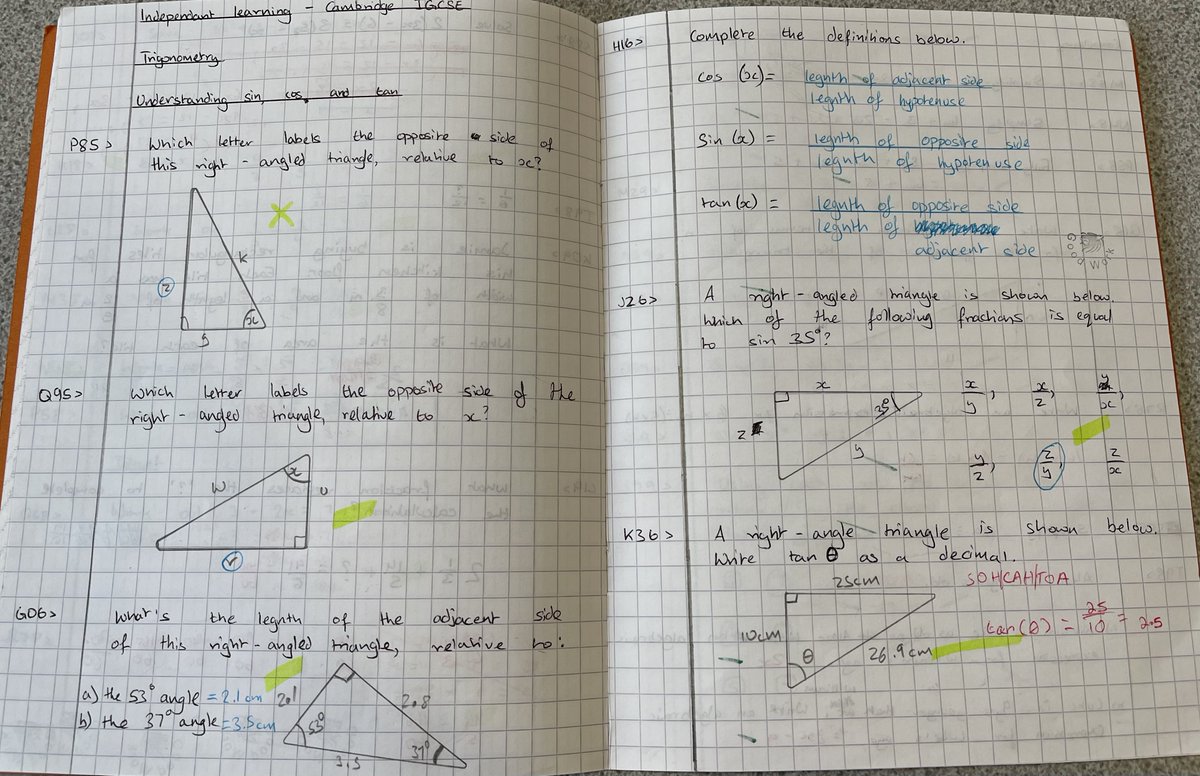 Independant learning - Cambridge IGCSE
Trigonometry
Understanding sin, cos, and tan
P85> Which letter labels the opposite side of
this right - angled triangle, relative to x?
k
z
x
y
Q95> Which letter labels the opposite side of the
right - angled triangle, relative to x?
x
w
u
v
G06> What's the legnth of the adjacent side
of this right - angled triangle, relative to:
a) the 53° angle = 2.1 cm
b) the 37° angle = 3.5 cm
2.1
2.8
53°
37°
3.5
H16> Complete the definitions below.
cos (x) = legnth of adjacent side
legnth of hypotenuse
Sin (x) = legnth of opposite side
legnth of hypotenuse
tan (x) = legnth of opposite side
legnth of
adjacent side
Good Work
J26> A right - angled triangle is shown below.
Which of the following fractions is equal
to sin 35°?
x
35°
z
y
x/y, x/z, y/x,
y/z, z/y, z/x
K36> A right - angle triangle is shown below.
Write tan θ as a decimal.
25cm
SOH/CAH/TOA
10cm
tan(θ) = 25/10 = 2.5
θ
26.9cm